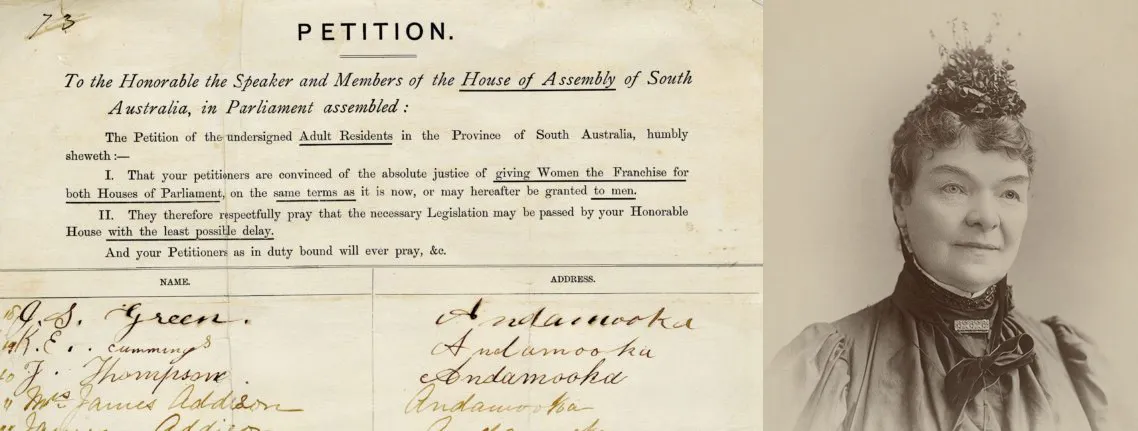 73
PETITION.
To the Honorable the Speaker and Members of the House of Assembly of South
Australia, in Parliament assembled :
The Petition of the undersigned Adult Residents in the Province of South Australia, humbly
sheweth :—
I. That your petitioners are convinced of the absolute justice of giving Women the Franchise for
both Houses of Parliament, on the same terms as it is now, or may hereafter be granted to men.
II. They therefore respectfully pray that the necessary Legislation may be passed by your Honorable
House with the least possible delay.
And your Petitioners as in duty bound will ever pray, &c.
NAME. ADDRESS.
G. S. Green. Andamooka
K. E. Cummings Andamooka
J. Thompson. Andamooka
Mrs James Addison Andamooka
James Addison